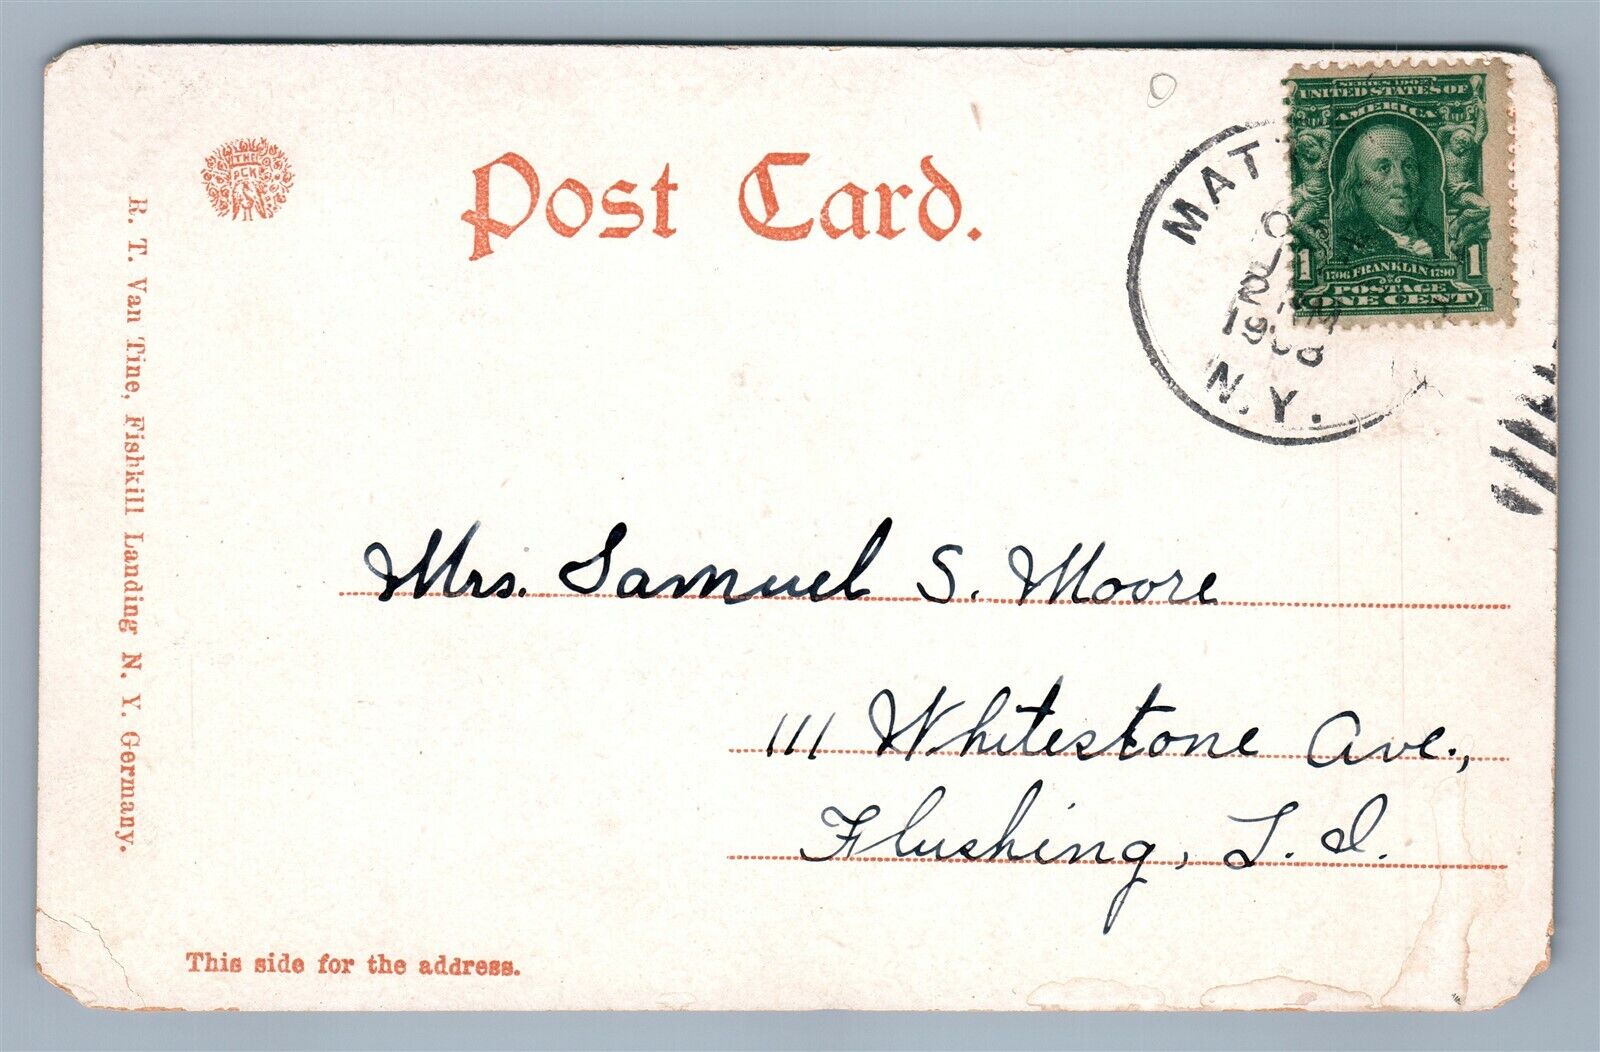 THE
PCK
Post Card.
SERIES 1902
UNITED STATES OF
AMERICA
1706 FRANKLIN 1790
1 1
POSTAGE
ONE CENT
MAT
1908
N.Y.
R. T. Van Tine, Fishkill Landing N. Y. Germany.
Mrs. Samuel S. Moore
111 Whitestone Ave.,
Flushing, L. I.
This side for the address.